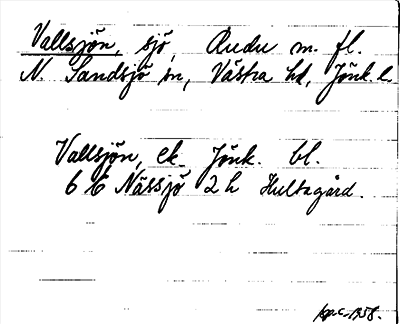 Vallsjön, sjö, Rudu m. fl.
N. Sandsjö sn, Västra hd, Jönk. l.
Vallsjön, ek. Jönk. bl.
6 6 Nässjö 2 h Hultagård.
1958.